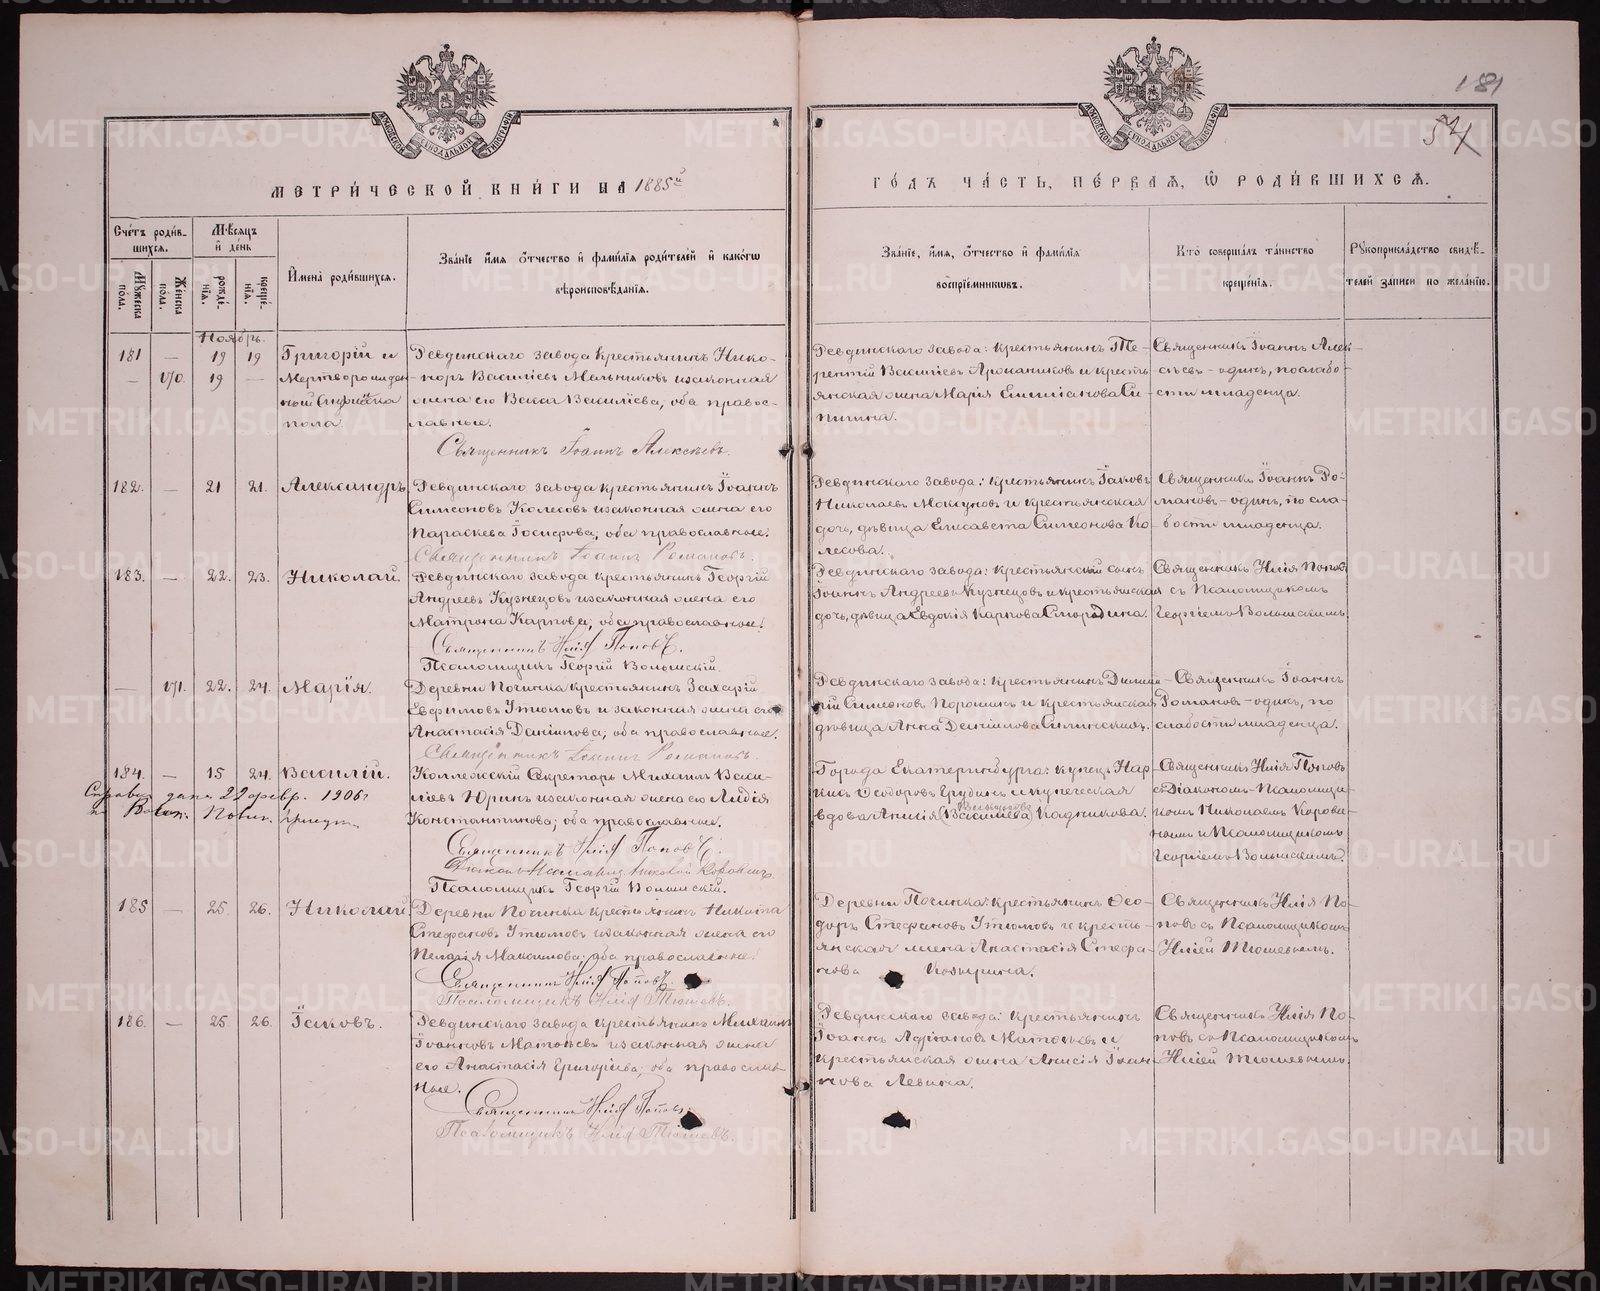 181
54
МЕТРИ́ЧЕСКОЙ КНИ́ГИ НА 1885й
ГО́ДЪ ЧА́СТЬ, ПЕ́РВАЯ, Ѿ РОДИ́ВШИХСЯ.
Сче́тъ роди́в-
шихся.
Мꙋжеска
по́ла.
Же́нска
по́ла.
Мѣ́сяцъ
и҆ де́нь
рожде́-
нїя.
креще́-
нїя.
И҆мена̀ роди́вшихся.
Зва́нїе и҆́мя ѻ҆́тчество и҆ фами́лїя роди́телей и҆ како́гѡ
вѣроисповѣ́данїя.
Зва́нїе, и҆́мя, ѻ҆́тчество и҆ фами́лїя
воспрїе́мникѡвъ.
Кто̀ соверша́лъ та́инство
креще́нїя.
Рꙋкоприкла́дство свидѣ́-
телей за́писи по жела́нїю.
Ноябрь.
181 — 19 19 Григорій и
— 170. 19 — Мертворожден-
ный
пола.
Ревдинскаго завода крестьянинъ Нико-
норъ Василіевъ Мельниковъ и законная
жена его Васса Василіева, оба правос-
лавные.
Священникъ Іоаннъ Алексѣевъ.
Ревдинскаго завода: крестьянинъ Те-
рентій Василіевъ и кресть-
янская жена Марія Емиліанова
Священникъ Іоаннъ Алек-
сѣевъ – одинъ, по слабо-
сти младенца.
182. — 21 21. Александръ
Ревдинскаго завода крестьянинъ Іоаннъ
Симеоновъ Колесовъ и законная жена его
Параскева Іосифова, оба православные.
Священникъ Іоаннъ Романовъ.
Ревдинскаго завода: крестьянинъ Іаковъ
Николаевъ и крестьянская
дочь, дѣвица Елисавета Симеонова Ко-
лесова.
Священникъ Іоаннъ Ро-
мановъ – одинъ, по сла-
бости младенца.
183. — 22. 23. Николай.
Ревдинскаго завода крестьянинъ Георгій
Андреевъ Кузнецовъ и законная жена его
Матрона Карпова, оба православные.
Священникъ Илія Поповъ.
Псаломщикъ Георгій Волынскій.
Ревдинскаго завода: крестьянскій сынъ
Іоаннъ Андреевъ Кузнецовъ и крестьянская
дочь, дѣвица Евдокія Карпова Смородина.
Священникъ Илія Поповъ
съ Псаломщикомъ
Георгіемъ Волынскимъ.
— 171. 22. 24. Марія.
Деревни Починка крестьянинъ Захарій
Евфимовъ Утюмовъ и законная жена его
Анастасія Даніилова, оба православные.
Священникъ Іоаннъ Романовъ.
Ревдинскаго завода: крестьянинъ Димит-
рій Симеоновъ и крестьянская
дѣвица Анна Даніилова
Священникъ Іоаннъ
Романовъ – одинъ, по
слабости младенца.
184. — 15 24. Василій.
Справка дана 22 февр. 1906 г
Коллежскій Секретарь Михаилъ Васи-
ліевъ Юринъ и законная жена его Лидія
Константинова; оба православные.
Священникъ Илія Поповъ.
Псаломщикъ Георгій Волынскій.
Города Екатеринбурга: купецъ Нар-
кисъ Ѳеодоровъ и купеческая
вдова Анисія (Васильева) Кадникова.
Священникъ Илія Поповъ
съ Діакономъ – Псаломщи-
комъ Николаемъ
и Псаломщикомъ
Георгіемъ Волынскимъ.
185 — 25 26. Николай.
Деревни Починка крестьянинъ Никита
Стефановъ Утюмовъ и законная жена его
Пелагія Максимова; оба православные.
Священникъ Илія Поповъ.
Псаломщикъ Илія Тюшевъ.
Деревни Починка: крестьянинъ Ѳео-
доръ Стефановъ Утюмовъ и кресть-
янская жена Анастасія Стефа-
нова
Священникъ Илія По-
повъ съ Псаломщикомъ
Иліей Тюшевымъ.
186. — 25 26. Іаковъ.
Ревдинскаго завода крестьянинъ Михаилъ
Іоанновъ и законная жена
его Анастасія Григоріева, оба православ-
ные.
Священникъ Илія Поповъ.
Псаломщикъ Илія Тюшевъ.
Ревдинскаго завода: крестьянинъ
Іоаннъ и
крестьянская жена Анисія Іоан-
нова Левина.
Священникъ Илія По-
повъ съ Псаломщикомъ
Иліей Тюшевымъ.
METRIKI.GASO-URAL.RU